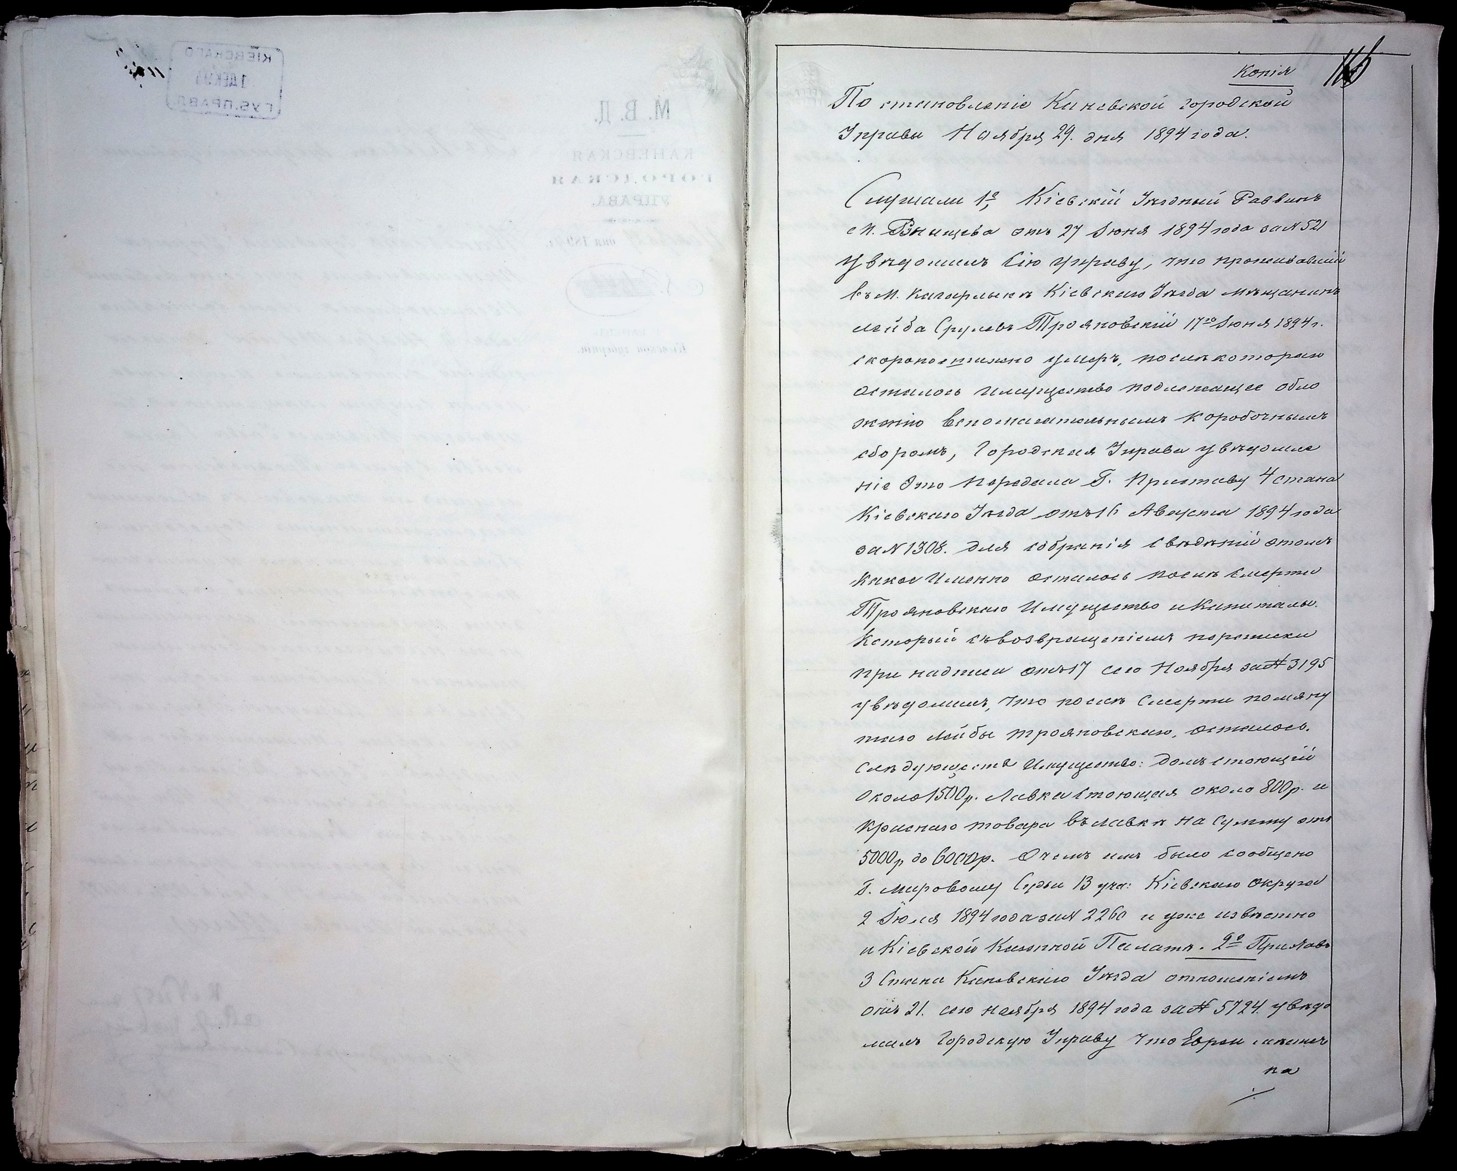 Копія
Постановленіе Каневской городской
Управы Ноября 29. дня 1894 года.
Слушали 1е, Кіевскій Уѣздный Раввинъ
отъ 27 Іюня 1894 года за № 521
увѣдомилъ сію управу, что проживавшій
въ м. Кагарлыкѣ Кіевскаго Уѣзда мѣщанинъ
Лейба Срулевъ Трояновскій 17го Іюня 1894 г.
скоропостижно умеръ, послѣ котораго
осталось имущество подлежащее обло
женію вспомагательнымъ коробочнымъ
сборомъ, Городская Управа увѣдомле
ніе это передала Г. Приставу 4 стана
Кіевскаго Уѣзда отъ 16 Августа 1894 года
за № 1308. для собранія свѣдѣній отомъ
какое именно осталось послѣ смерти
Трояновскаго имущество и капиталы.
Который съ возвращеніемъ переписки
при надписи отъ 17 сего Ноября за № 3195
увѣдомилъ, что послѣ смерти помяну
таго Лейбы Трояновскаго, осталось.
слѣдующее имущество: домъ стоющій
около 1500 р. Лавка стоющая около 800 р. и
краснаго товара въ лавкѣ на сумму отъ
5000 р до 6000 р. Очемъ имъ было сообщено
Г. Мировому Судьи 13 уча: Кіевскаго округа
2 Іюля 1894 года за № 2260 и уже извѣстно
и Кіевской Казенной Палатѣ. 2е Приставъ
3 Стана Каневскаго Уѣзда отношеніемъ
отъ 21. сего ноября 1894 года за № 5724. увѣдо
милъ Городскую Управу что Евреи
на